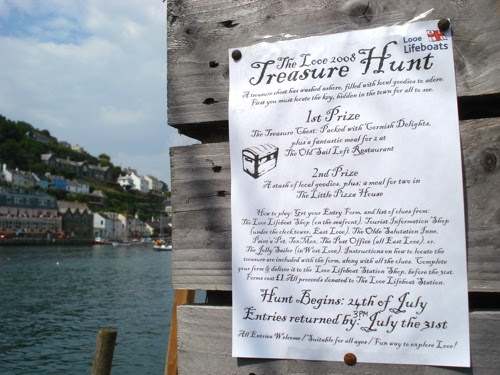 Looe
Lifeboats
The Looe 2008
Treasure Hunt
A treasure chest has washed ashore, filled with local goodies to adore.
First you must locate the key, hidden in the town for all to see.
1st Prize
The Treasure Chest: Packed with Cornish Delights,
plus a fantastic meal for 2 at
The Old Sail Loft Restaurant
2nd Prize
A stash of local goodies, plus; a meal for two in
The Little Pizza House
How to play: Get your Entry Form, and list of clues from:
The Looe Lifeboat Shop (on the seafront), Tourist Information Shop
(under the clock tower, East Looe), The Olde Salutation Inne,
Paint a Pot, TexMex, The Post Office (all East Looe) or,
The Jolly Sailor (in West Looe). Instructions on how to locate the
treasure are included with the form, along with all the clues. Complete
your form & deliver it to the Looe Lifeboat Station Shop, before the 31st.
Forms cost £1. All proceeds donated to The Looe Lifeboat Station.
Hunt Begins: 24th of July
Entries returned by: 3PM July the 31st
All Entries Welcome / Suitable for all ages / Fun way to explore Looe!